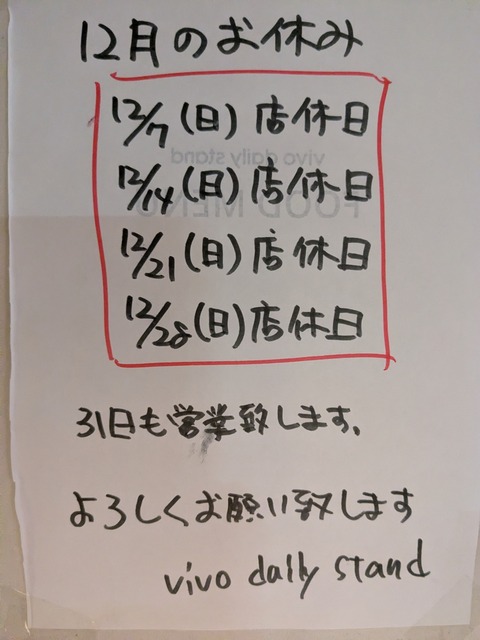 12月のお休み
12/7(日)店休日
12/14(日)店休日
12/21(日)店休日
12/28(日)店休日
31日も営業致します。
よろしくお願い致します
vivo daily stand
vivo daily stand
FOOD MENU